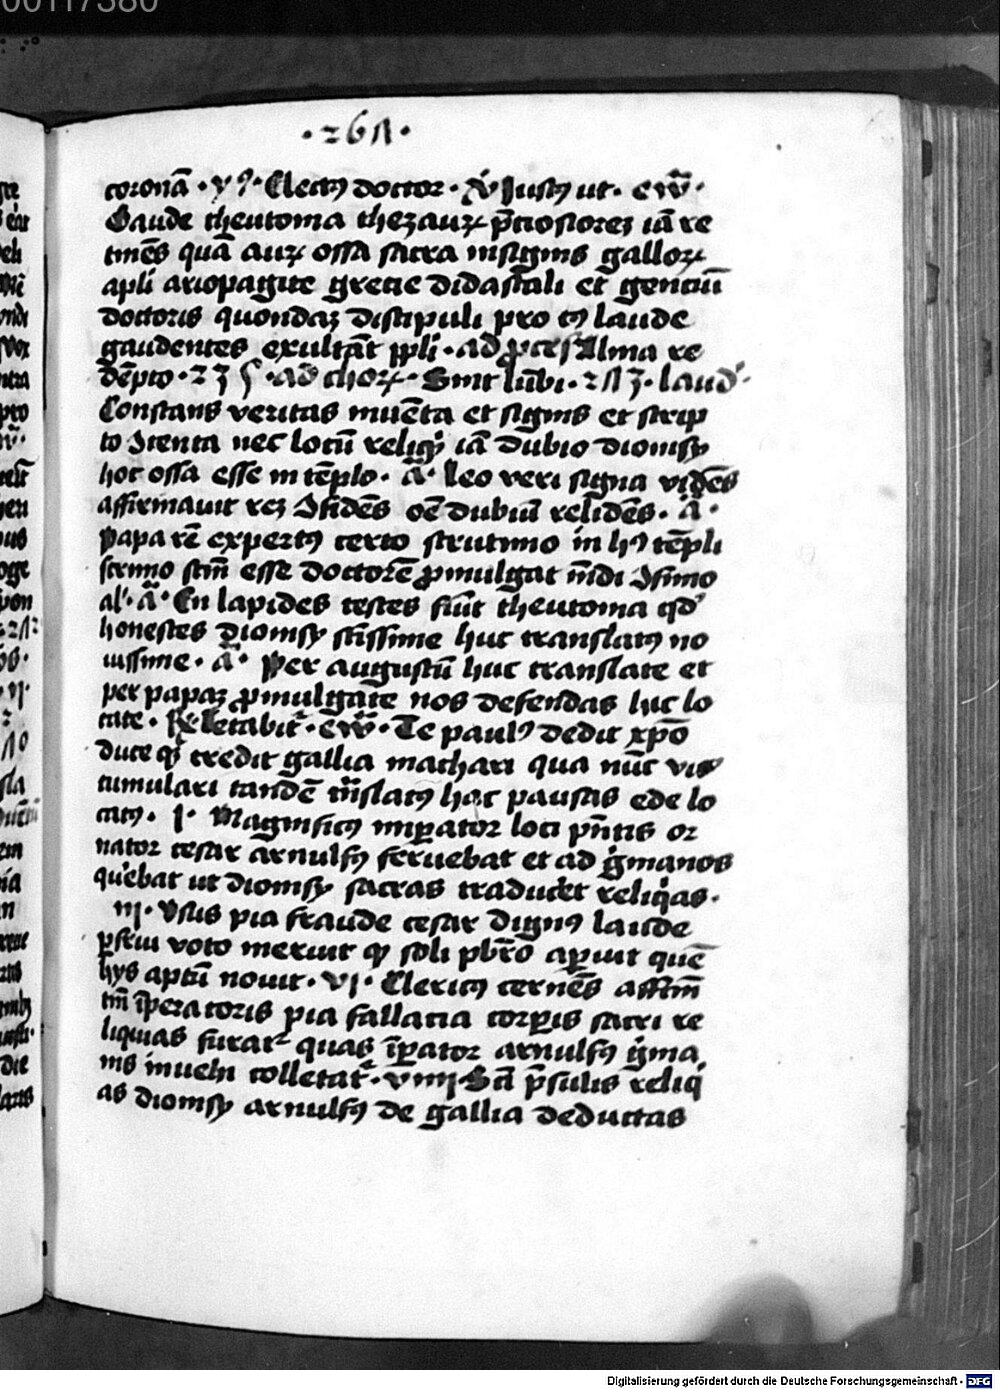 00117380
·267·
coronā · v ꝰ· Electꝰ doctor · ꝟ Justꝰ ut · ew̄ ·
Gaude theutonia thezauꝝ p̄ciosiorez iā re
tinēs quā auꝝ ossa sacra insignis galloꝝ
apli ariopagite grecie didascali et gentiū
doctoris quondaꝫ discipuli pro cꝰ laude
gaudentes exultāt ppli · ad ꝓces Alma re
dēpto · 235 · ad choꝝ · Sint lūbi · 273 · laud'
Constans veritas inuēta et signis et scrip
to Itenta nec locū reliqͥ iā dubio dionisy
hoc ossa esse in tēplo · ā · Leo veri signa vidēs
affirmauit rez Ifidēs oē dubiū relidēs · ā ·
Papa rē expertꝰ certo scrutinio in hꝰ tēpli
scrinio scm̄ esse doctorē ꝓmulgat m̄di Ifinio
al' · ā · En lapides testes siūt theutonia qd'
honestes dionisy sc̄issime huc translatꝰ no
uissime · ā · Per augustū huc translate et
per papaꝫ ꝓmulgate nos defendas huc lo
cate · ℟ letabit᷑ · ew̄ · Te paulꝰ dedit xp̄o
duce qͥ credit gallia mactari qua nūc vis
tumulari tandē tn̄slatꝰ hac pausas ede lo
catꝰ · I · Magnificꝰ imꝑator loci pn̄tis or
nator cesar arnulfꝰ feruebat et ad gͥmanos
querebat ut dionisy sacras traduceret reliqͥas ·
III · Usus pia fraude cesar dignꝰ laude
ꝑfrui voto meruit qꝫ soli pb̄ro aꝑuit quē
hys aptū nouit · VI · Clericꝰ cernēs affcm̄
tm̄ īperatoris pia fallacia corꝑis sacri re
liquias furat᷑ quas īꝑator arnulfꝰ gͥma
nis inuehi colletat᷑ · VIIII · Sc̄i p̄sulis reliqͥ
as dionisy arnulfꝰ de gallia deductas
Digitalisierung gefördert durch die Deutsche Forschungsgemeinschaft - DFG